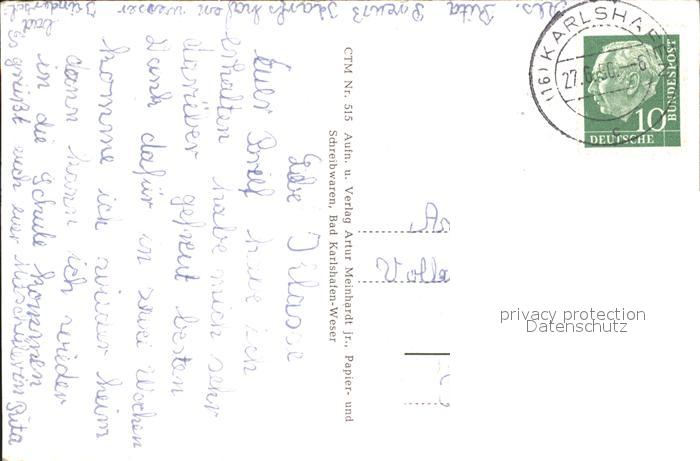 Abs. Rita
Karlshafen weser
Bad Kinderheim
Liebe Klasse
Euer Brief habe ich
erhalten habe mich sehr
darüber gefreut besten
Dank dafür in zwei Wochen
komme ich wieder heim
dann kann ich wieder
in die Schule kommen
Es grüßt euch eure Mitschülerin Rita
CTM Nr. 515 Aufn. u. Verlag Artur Meinhardt jr., Papier- und
Schreibwaren, Bad Karlshafen-Weser
(16) KARLSHAFEN
27.6.
10
DEUTSCHE
BUNDESPOST
privacy protection
Datenschutz